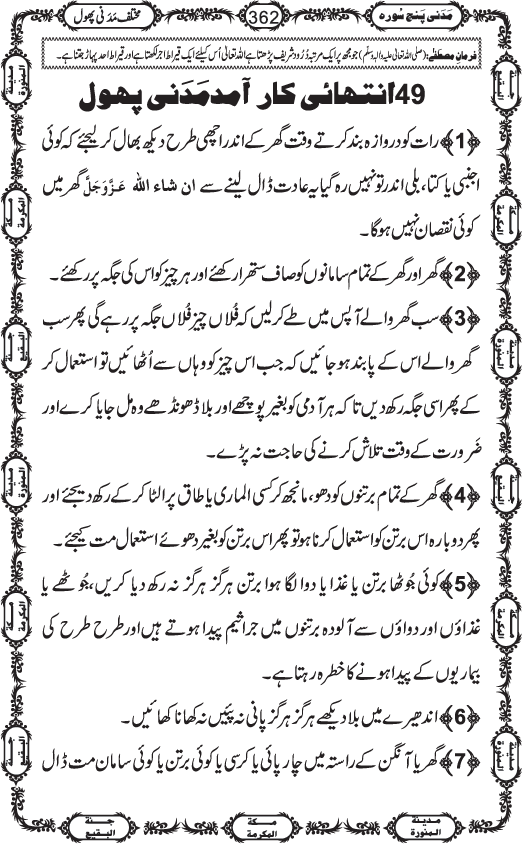 مَدَنی پنج سُورہ
362
مختلف مَدَنی پھول
فرمانِ مصطفٰے: (صلی اللہ تعالیٰ علیہ والہٖ وسلم) جو مجھ پر ایک مرتبہ دُرُود شریف پڑھتا ہے اللہ تعالیٰ اُس کیلئے ایک قیراط اجر لکھتا ہے اور قیراط احد پہاڑ جتنا ہے۔
49 انتہائی کار آمد مَدَنی پھول
﴿1﴾ رات کو دروازہ بند کرتے وقت گھر کے اندر اچھی طرح دیکھ بھال کر لیجئے کہ کوئی
اجنبی یا کتا، بلی اندر تو نہیں رہ گیا یہ عادت ڈال لینے سے ان شاء اللہ عَزَّوَجَلَّ گھر میں
کوئی نقصان نہیں ہوگا۔
﴿2﴾ گھر اور گھر کے تمام سامانوں کو صاف ستھرا رکھئے اور ہر چیز کو اس کی جگہ پر رکھئے۔
﴿3﴾ سب گھر والے آپس میں طے کرلیں کہ فُلاں چیز فُلاں جگہ پر رہے گی پھر سب
گھر والے اس کے پابند ہو جائیں کہ جب اس چیز کو وہاں سے اُٹھائیں تو استعمال کر
کے پھر اسی جگہ رکھ دیں تا کہ ہر آدمی کو بغیر پوچھے اور بلا ڈھونڈھے وہ مل جایا کرے اور
ضَرورت کے وقت تلاش کرنے کی حاجت نہ پڑے۔
﴿4﴾ گھر کے تمام برتنوں کو دھو، مانجھ کر کسی الماری یا طاق پر الٹا کر کے رکھ دیجئے اور
پھر دوبارہ اس برتن کو استعمال کرنا ہو تو پھر اس برتن کو بغیر دھوئے استعمال مت کیجئے۔
﴿5﴾ کوئی جُوٹھا برتن یا غذا یا دوا لگا ہوا برتن ہرگز ہرگز نہ رکھ دیا کریں، جُوٹھے یا
غذاؤں اور دواؤں سے آلودہ برتنوں میں جراثیم پیدا ہوتے ہیں اور طرح طرح کی
بیماریوں کے پیدا ہونے کا خطرہ رہتا ہے۔
﴿6﴾ اندھیرے میں بلا دیکھے ہرگز ہرگز پانی نہ پئیں نہ کھانا کھائیں۔
﴿7﴾ گھر یا آنگن کے راستہ میں چارپائی یا کرسی یا کوئی برتن یا کوئی سامان مت ڈال
مدینة المنورة
جنة البقیع
مكة المكرمة
مكة المكرمة
جنة البقیع
مدینة المنورة
مدینة المنورة
جنة البقیع
مكة المكرمة
مكة المكرمة
جنة البقیع
مدینة المنورة
جنة البقیع
مكة المكرمة
مدینة المنورة